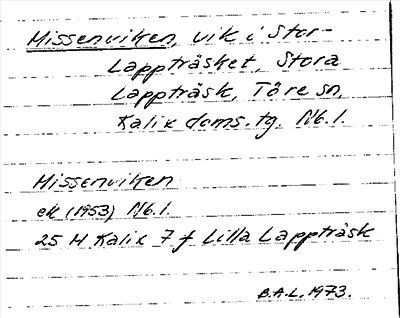 Missenviken, vik i Stor-
Lappträsket, Stora
Lappträsk, Töre sn,
Kalix doms. tg. Nb. l.
Missenviken
ek (1953) Nb. l.
25 H Kalix 7 f Lilla Lappträsk
B.A.L. 1973.